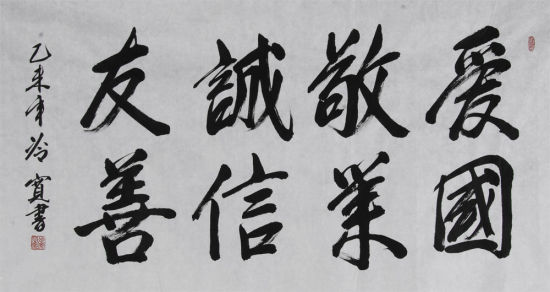 爱國
敬業
誠信
友善
乙未年冷寬書